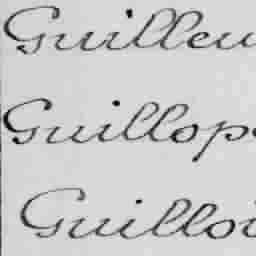 Guilleu
Guillop
Guilloi